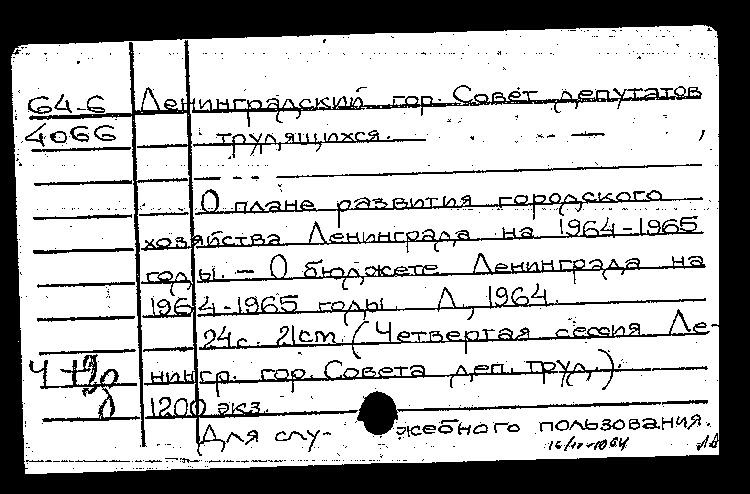 64-6 Ленинградский гор. Совет депутатов
4066 трудящихся.
О плане развития городского
хозяйства Ленинграда на 1964-1965
годы. - О бюджете Ленинграда на
1964-1965 годы Л., 1964.
24с. 21cm (Четвертая сессия Ле-
нингр. гор. Совета деп. труд.).
1200 экз.
Для слу- жебного пользования.